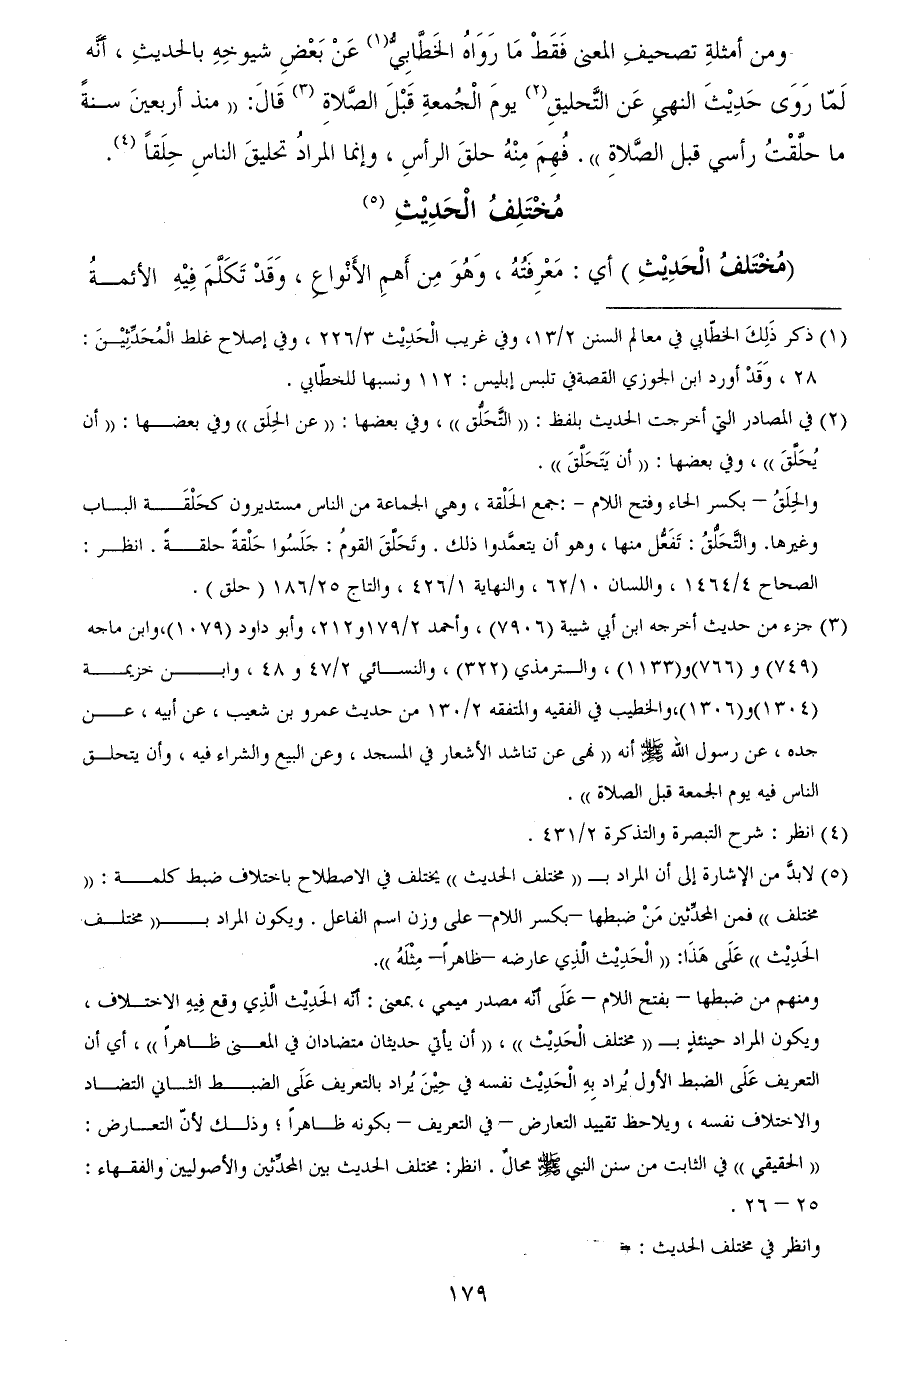 ومن أمثلةِ تصحيفِ المعنى فَقَطْ مَا رَوَاهُ الخَطَّابيُّ(١) عَنْ بَعْضِ شيوخِهِ بالحديثِ ، أنَّه
لَمّا رَوَى حَدِيْثَ النهيِ عَن التَّحليقِ(٢) يومَ الْجُمعةِ قَبْلَ الصَّلاةِ (٣) قَالَ: (( منذ أربعينَ سـنةً
ما حلَّقْتُ رأسي قبل الصَّلاةِ )) . فُهِمَ مِنْهُ حلقَ الرأسِ ، وإنما المرادُ تحليقَ الناسِ حِلَقاً (٤).
مُخْتَلِفُ الْحَدِيْثِ (٥)
(مُخْتَلفُ الْحَدِيْثِ ) أي : مَعْرِفَتُهُ ، وَهُوَ مِن أَهمِ الأَنْواعِ ، وَقَدْ تَكَلَّمَ فِيْهِ الأئمــةُ
(١) ذكر ذَلِكَ الخطّابي في معالم السنن ١٣/٢، وفي غريب الْحَدِيْث ٢٢٦/٣ ، وفي إصلاح غلط الْمُحَدِّثِيْــن :
٢٨ ، وَقَدْ أورد ابن الجوزي القصةفي تلبس إبليس : ١١٢ ونسبها للخطّابي .
(٢) في المصادر التي أخرجت الحديث بلفظ : (( التَّحَلُّق )) ، وفي بعضها : (( عن الحِلَق )) وفي بعضــها : (( أن
يُحَلَّقَ )) ، وفي بعضها : (( أن يَتَحَلَّقَ )) .
والحِلَقُ – بكسر الحاء وفتح اللام – :جمع الحَلْقة ، وهي الجماعة من الناس مستديرون كحَلْقَـــة البـاب
وغيرها. والتَّحَلُّقُ : تَفَعُّل منها ، وهو أن يتعمَّدوا ذلك . وتَحَلَّقَ القومُ : جَلَسُوا حَلْقةً حلقـــةً . انظـر :
الصحاح ١٤٦٤/٤ ، واللسان ٦٢/١٠ ، والنهاية ٤٢٦/١ ، والتاج ١٨٦/٢٥ ( حلق ) .
(٣) جزء من حديث أخرجه ابن أبي شيبة (٧٩٠٦) ، وأحمد ١٧٩/٢و٢١٢، وأبو داود (١٠٧٩)،وابن ماجه
(٧٤٩) و (٧٦٦)و(١١٣٣) ، والـترمذي (٣٢٢) ، والنســائي ٤٧/٢ و ٤٨ ، وابــــن خزيمــــة
(١٣٠٤)و(١٣٠٦)،والخطيب في الفقيه والمتفقه ١٣٠/٢ من حديث عمرو بن شعيب ، عن أبيه ، عــن
جده ، عن رسول الله ﷺ أنه (( نهى عن تناشد الأشعار في المسجد ، وعن البيع والشراء فيه ، وأن يتحلــق
الناس فيه يوم الجمعة قبل الصلاة )) .
(٤) انظر : شرح التبصرة والتذكرة ٤٣١/٢ .
(٥) لابدَّ من الإشارة إلى أن المراد بــ (( مختلف الحديث )) يختلف في الاصطلاح باختلاف ضبط كلمــة : ((
مختلف )) فمن المحدِّثين مَنْ ضبطها –بكسر اللام– على وزن اسم الفاعل . ويكون المراد بـــــ(( مختلــف
الحَدِيْث )) عَلَى هَذَا: (( الْحَدِيْث الَّذِي عارضه –ظاهراً– مِثْلَهُ )).
ومنهم من ضبطها – بفتح اللام –عَلَى أنّه مصدر ميمي ، بمعنى : أنّه الحَدِيْث الَّذِي وقع فِيهِ الاختــلاف ،
ويكون المراد حينئذٍ بـــ (( مختلف الْحَدِيْث )) ، (( أن يأتي حديثان متضادان في المعــنى ظــاهراً )) ، أي أن
التعريف عَلَى الضبط الأول يُراد بِهِ الْحَدِيْث نفسه في حِيْنَ يُراد بالتعريف عَلَى الضبــط الثــاني التضـاد
والاختلاف نفسه ، ويلاحظ تقييد التعارض – في التعريف – بكونه ظـاهراً ؛ وذلــك لأنّ التعـارض :
(( الحقيقي )) في الثابت من سنن النبي ﷺ محالٌ . انظر: مختلف الحديث بين المحدِّثين والأصوليين والفقهاء :
٢٥ – ٢٦ .
وانظر في مختلف الحديث : =
١٧٩